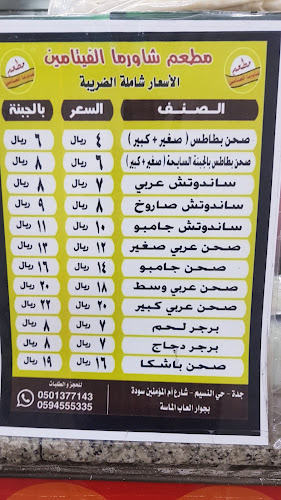 مطعم شاورما الفيتامين
الأسعار شاملة الضريبة
الـصـنـف السعر بالجبنة
صحن بطاطس ( صغير + كبير ) ٤ ريال ٦ ريال
صحن بطاطس بالجبنة السايحة ( صغير + كبير ) ٦ ريال ٨ ريال
ساندوتش عربي ٧ ريال ٨ ريال
ساندوتش صاروخ ٨ ريال ٩ ريال
ساندوتش جامبو ١٠ ريال ١١ ريال
صحن عربي صغير ١٢ ريال ١٣ ريال
صحن جامبو ١٤ ريال ١٦ ريال
صحن عربي وسط ١٨ ريال ٢٠ ريال
صحن عربي كبير ٢٠ ريال ٢٢ ريال
برجر لحم ٧ ريال ٨ ريال
برجر دجاج ٧ ريال ٨ ريال
صحن باشكا ١٦ ريال ١٩ ريال
جدة - حي النسيم - شارع أم المؤمنين سودة
بجوار العاب الماسة
للحجز و الطلبات
0501377143
0594555335